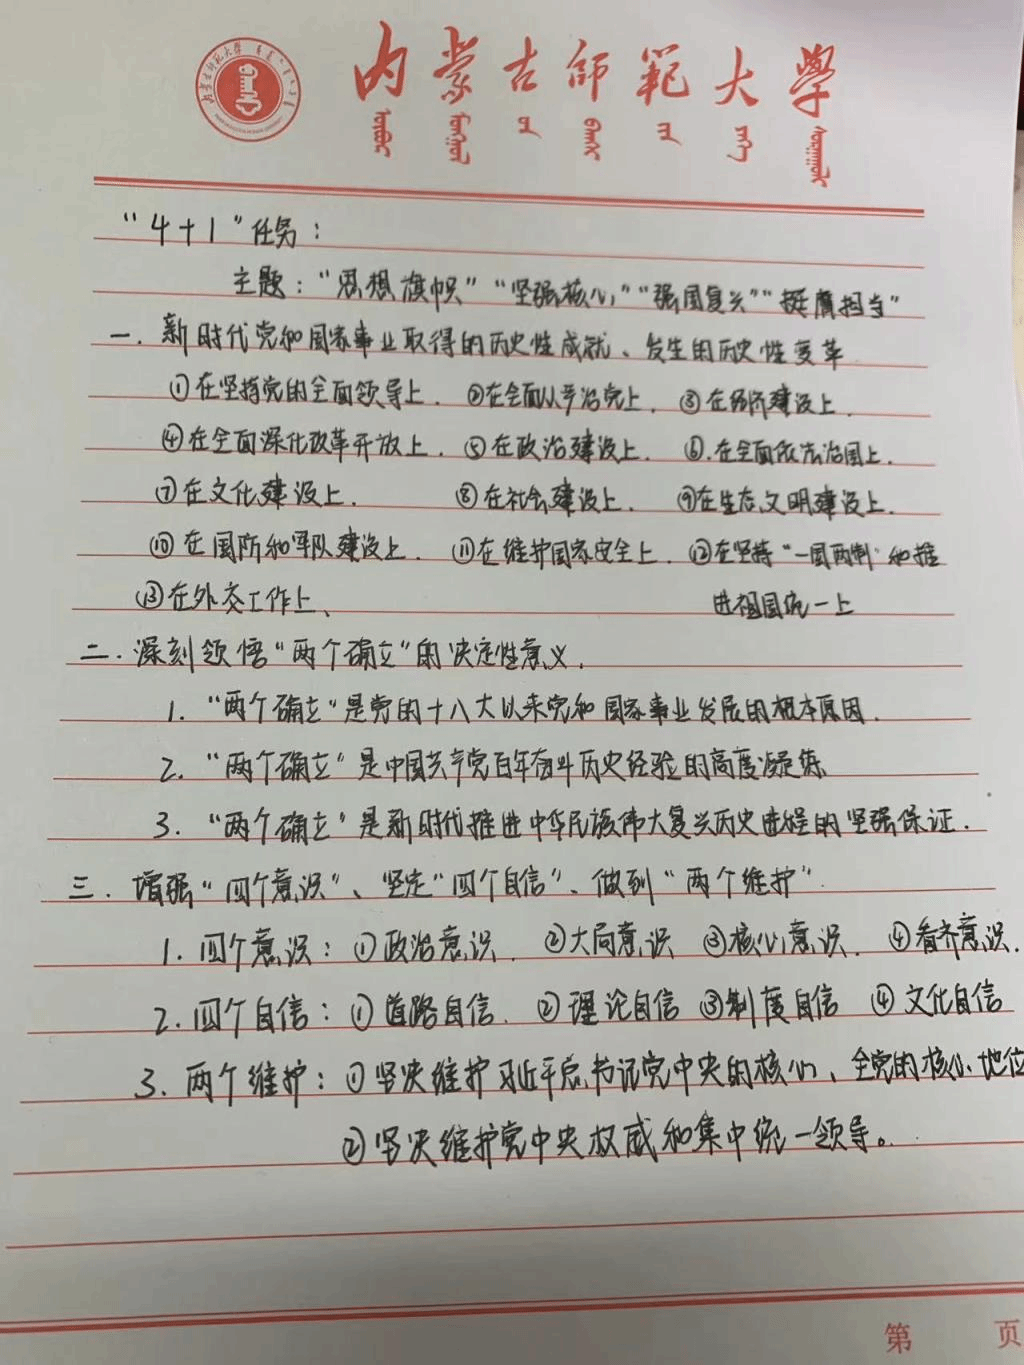 内蒙古师范大学
"4+1"任务：
主题："思想旗帜""坚强核心""强国复兴""挺膺担当"
一.新时代党和国家事业取得的历史性成就、发生的历史性变革
①在坚持党的全面领导上. ②在全面从严治党上. ③在经济建设上.
④在全面深化改革开放上. ⑤在政治建设上. ⑥.在全面依法治国上.
⑦在文化建设上. ⑧在社会建设上. ⑨在生态文明建设上.
⑩在国防和军队建设上. ⑪在维护国家安全上. ⑫在坚持"一国两制"和推
⑬在外交工作上、 进祖国统一上
二.深刻领悟"两个确立"的决定性意义.
1."两个确立"是党的十八大以来党和国家事业发展的根本原因.
2."两个确立"是中国共产党百年奋斗历史经验的高度凝练
3."两个确立"是新时代推进中华民族伟大复兴历史进程的坚强保证.
三.增强"四个意识"、坚定"四个自信"、做到"两个维护"
1.四个意识：①政治意识. ②大局意识 ③核心意识. ④看齐意识.
2.四个自信：①道路自信. ②理论自信 ③制度自信 ④文化自信
3.两个维护：①坚决维护习近平总书记党中央的核心、全党的核心地位
②坚决维护党中央权威和集中统一领导。
第 页